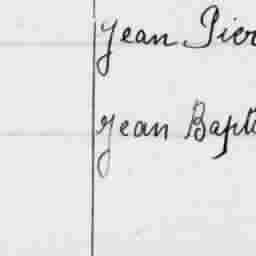 Jean Pier
Jean Bapti